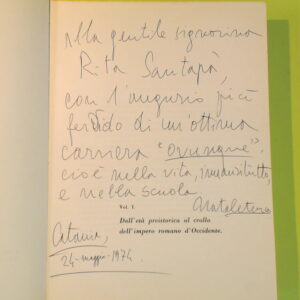 Alla gentile signorina
Rita Santapà,
con l'augurio più
fervido di un'ottima
carriera "ovunque",
cioè nella vita, innanzitutto,
e nella scuola.
Vol. I.
Dall'età preistorica al crollo
dell'impero romano d'Occidente.
Catania,
24-maggio-1974